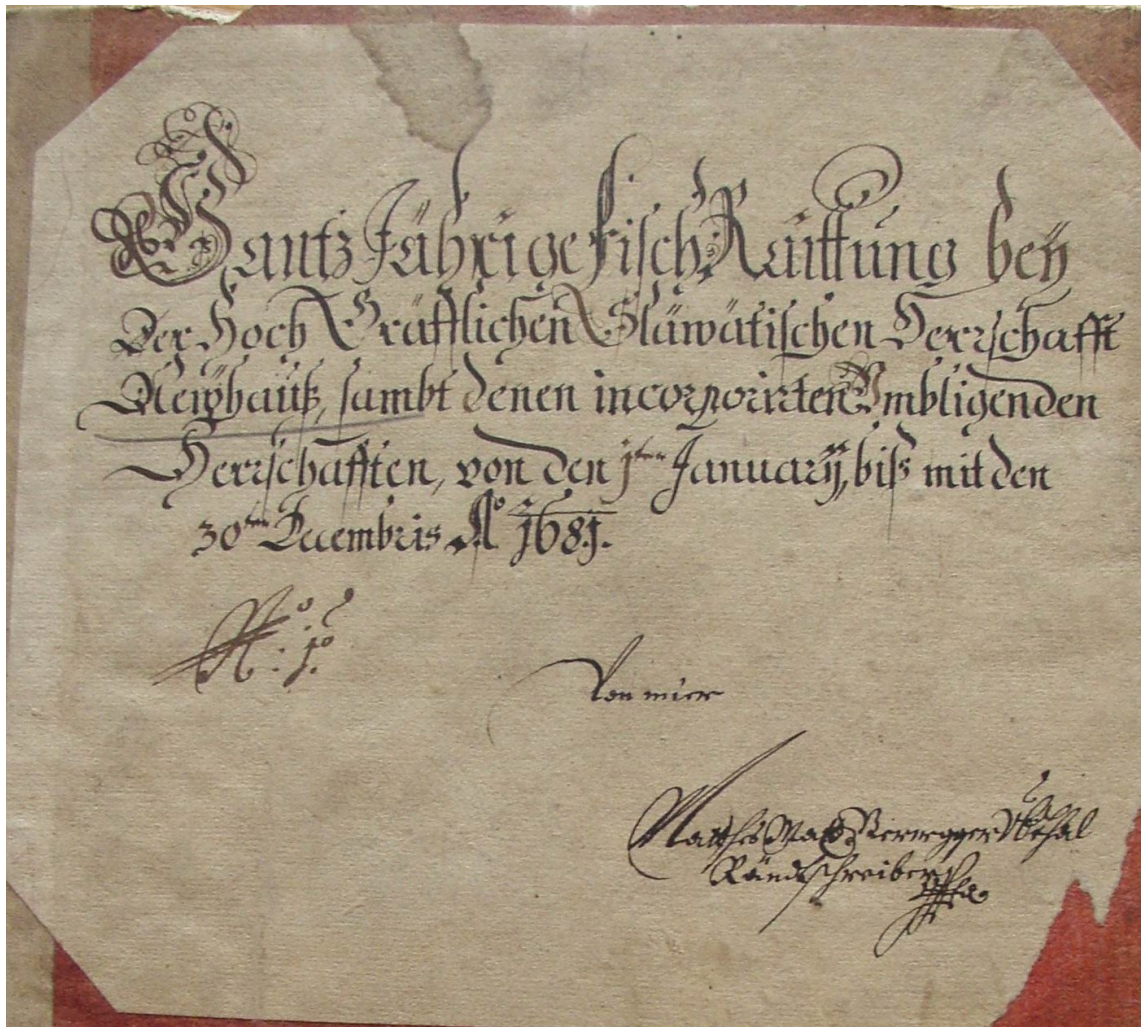 Gantz Jährige Fisch Raittung bey
Der Hoch Gräfflichen Slawatischen Herrschafft
Neÿhauß, sambt denen incorporirten Vmbligenden
Herrschafften, von den 1ten Januarÿ, biß mit den
30ten Decembris Ao 1681.
No: 1o.
Von mier
Matthes